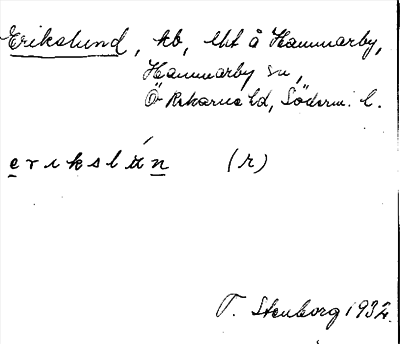 Erikslund, tb, lht å Hammarby,
Hammarby sn,
Ö Rekarne hd, Söderm. l.
erikslún (r)
T. Stenborg 1932.